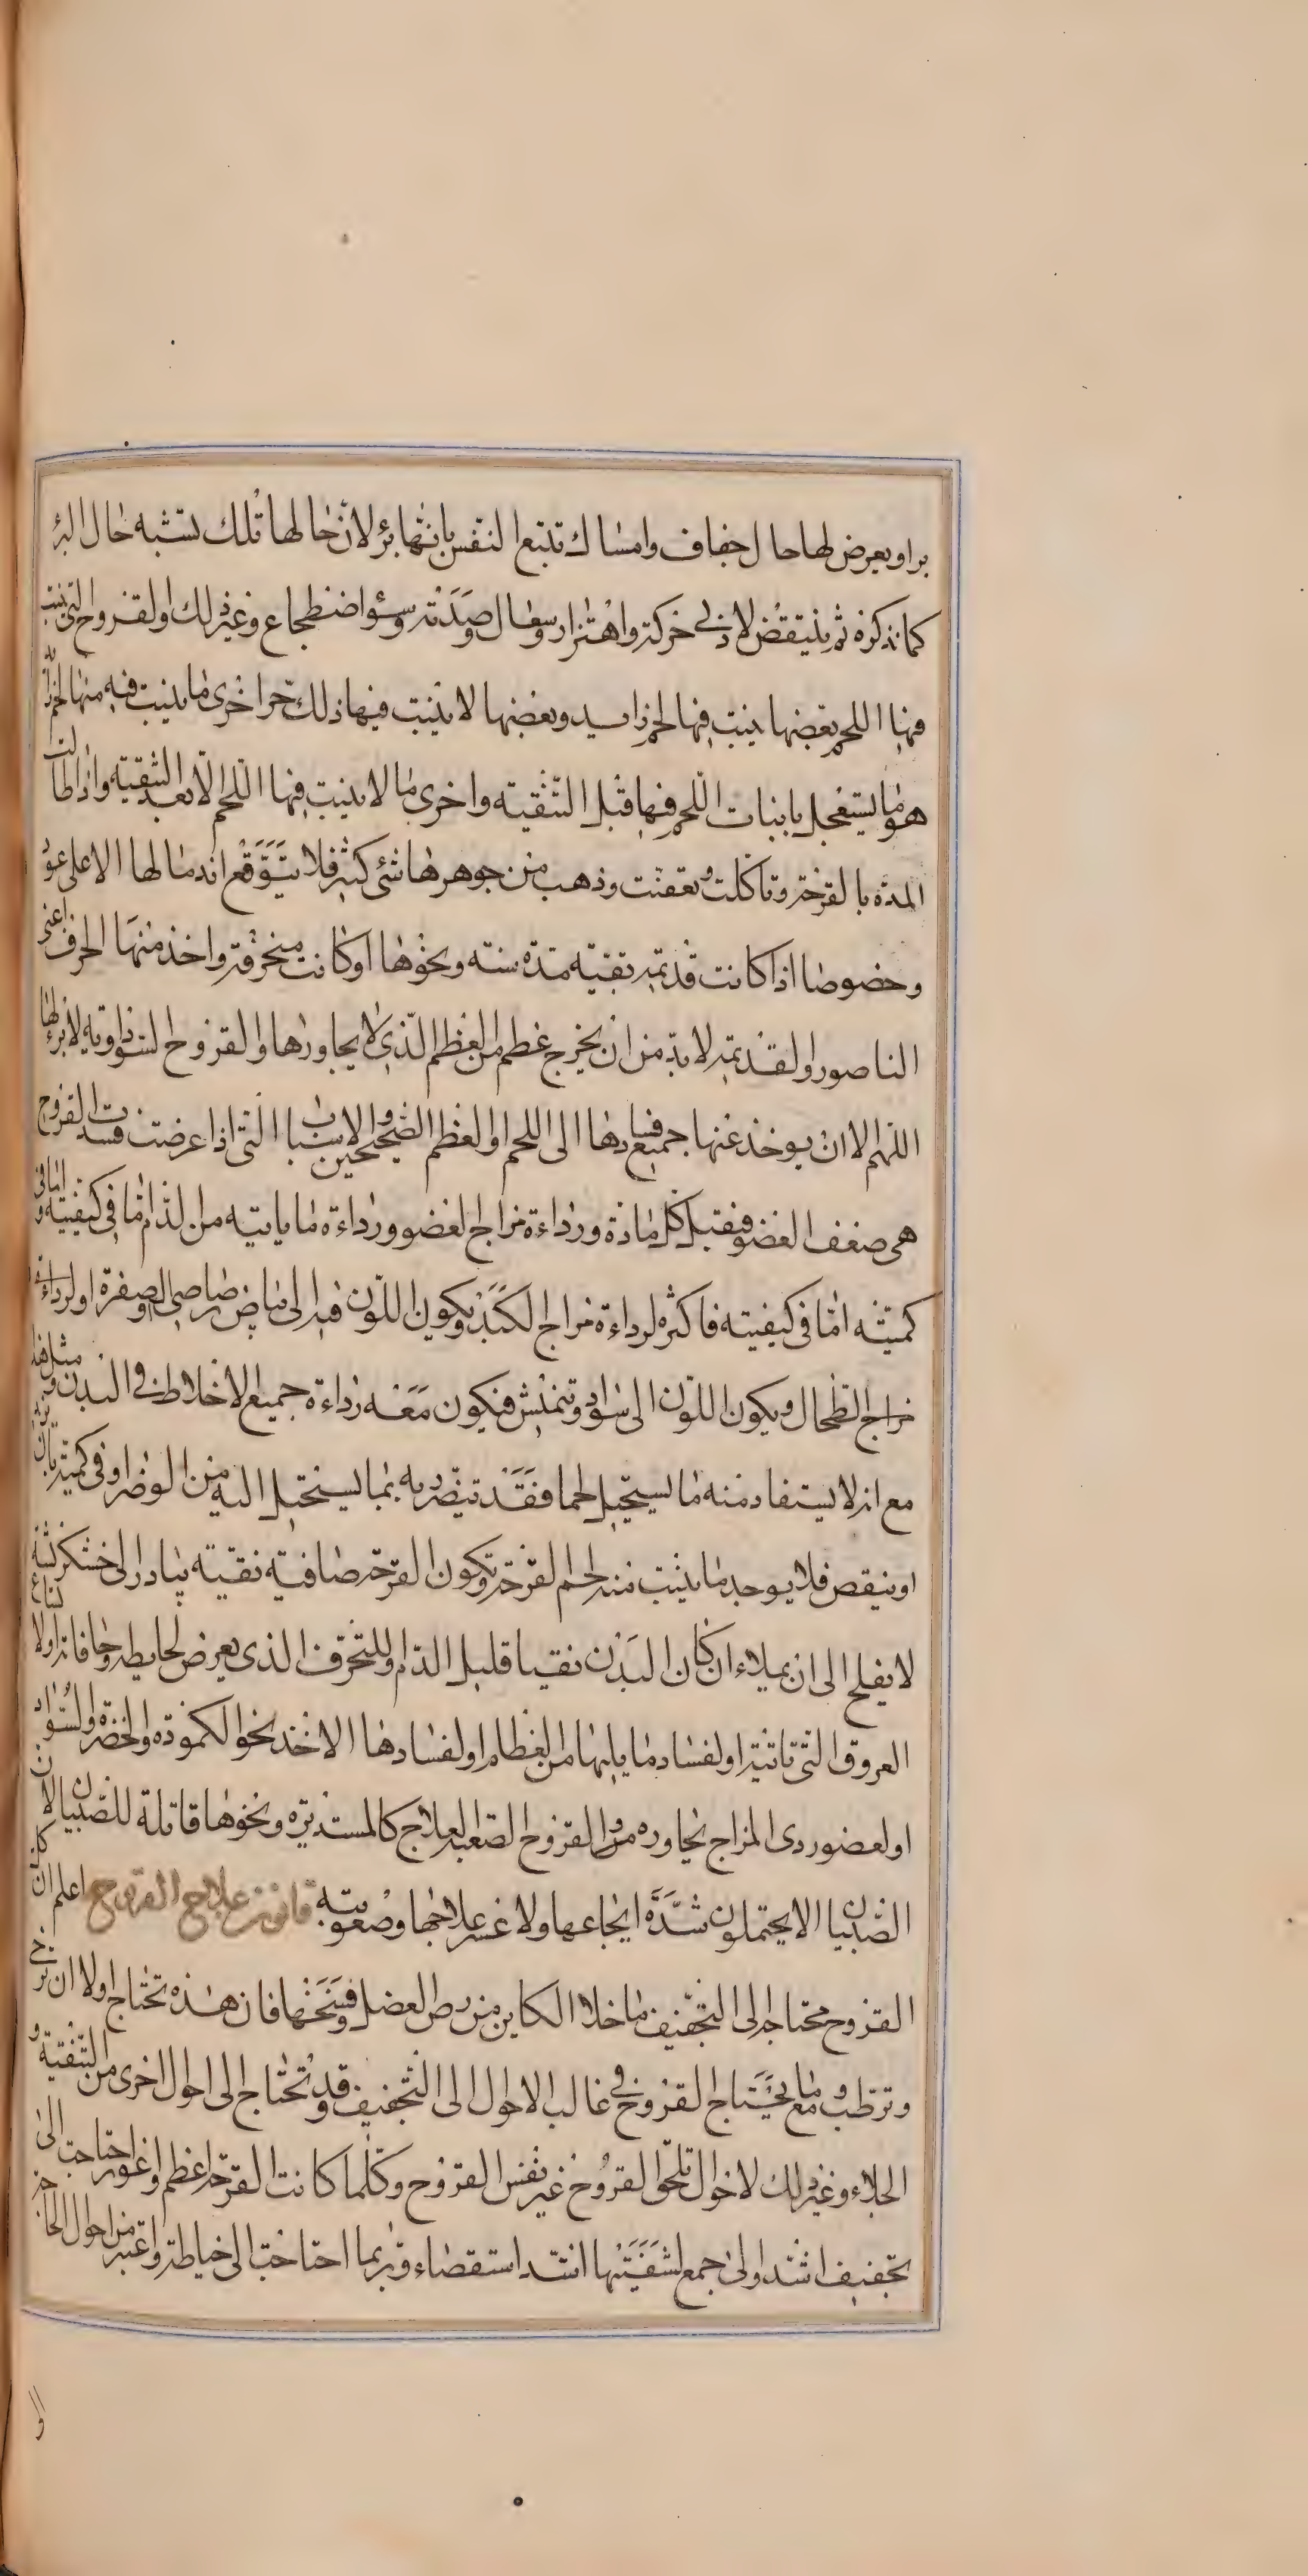 براويعرض لها حال جفاف وامساك تتبع النفس بانها برؤ لان حالها تلك تشبه حال البرؤ
كما نذكره ثم ينتقض لادنى حركة واهتزاز وسعال وصدمة وسؤ اضطجاع وغير ذلك والقروح التى ينبت
فيها اللحم بعضها ينبت فيها لحم زايد وبعضها لا ينبت فيها ذلك حر اخرى ما ينبت فيه منها لحم زايد
هو ما يستعجل بانبات اللحم فيها قبل التنقية واخرى ما لا ينبت فيها اللحم الا بعد التنقية واذا طالت
المدة بالقرحة وتاكلت وتعفنت وذهب من جوهرها شئ كثير فلا يتوقع اندمالها الا على غور
وخصوصا اذا كانت قديمة بقيته مدة سنة ونحوها او كانت منخرقة واخذ منها الحرف اعنى
الناصور والقديمة لا بد من ان يخرج عظم من العظم الذى لا يجاورها والقروح السوداوية لا برؤ لها
اللهم الا ان يوخذ عنها جميع فسادها الى اللحم او العظم الصحيحين والاسباب التى اذا عرضت فسدت القروح
هى ضعف العضو فيقبل كل مادة ورداءة مزاج العضو ورداءة ما ياتيه من الدم اما فى كيفيته واما فى
كميته اما فى كيفيته فاكثره لرداءة مزاج الكبد ويكون اللون فيه الى بياض رصاصى او صفرة او لرداءة
مزاج الطحال ويكون اللون الى سواد وتنمش فيكون معه رداءة جميع الاخلاط فى البدن ومثل هذا
مع انه لا يستفاد منه ما يستحيل لحما فقد تتضرر به بما يستحيل اليه من الوضر او فى كميته بان يزيد
او ينقص فلا يوجد ما ينبت منه لحم القرحة وتكون القرحة صافية نقية يبادر الى خشكريشة
لا يفلح الى ان يملاء ان كان البدن نقيا قليل الدم وللتخرق الذى يعرض لحايطه وحافاته او لاتساع
العروق التى تاتيه او لفساد ما يليها من العظام او لفسادها الاخذ نحو الكمودة والخضرة والسواد
او لعضو ردى المزاج يجاوره والقروح الصعبة العلاج كالمستديرة ونحوها قاتلة للصبيان لان
الصبيان لا يحتملون شدة ايجاعها ولا عسر علاجها وصعوبته قانون علاج القروح اعلم ان كل
القروح محتاجة الى التجفيف ما خلا الكاين من رض العضل وفسخها فان هذه تحتاج اولا ان ترخى
وترطب ومع ما يحتاج القروح فى غالب الاحوال الى التجفيف وقد تحتاج الى احوال اخرى من التنقية و
الجلاء وغير ذلك لاحوال تلحق القروح غير نفس القروح وكلما كانت القرحة اعظم واغور احتاجت الى
تجفيف اشد والى جمع لشفتيها اشد استقصاء وربما احتاجت الى خياطة واعتبر من احوال الحاجة
الى